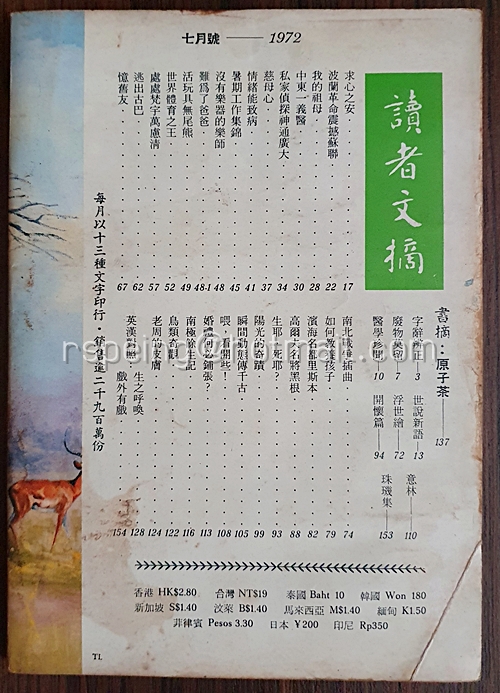 七月號 —— 1972
讀者文摘
求心之安 17
波蘭革命震撼蘇聯 22
我的祖母 28
中東一義醫 30
私家偵探神通廣大 34
慈母心 37
情緒能致病 41
暑期工作集錦 45
沒有樂器的樂師 48
難爲了爸爸 48-1
活玩具無尾熊 49
世界體育之王 52
處處梵字萬慮清 57
逃出古巴 62
憶舊友 67
書摘・原子茶 —— 137
字辭辨正 — 3
世說新語 — 13
意林 — 110
廢物莫留 — 7
浮世繪 — 72
珠璣集 — 153
醫學珍聞 — 10
開懷篇 — 94
南北戰爭插曲 74
如何教養孩子 79
濱海名都里斯本 82
高爾夫名將黑根 88
生耶？死耶？ 93
陽光的奇蹟 99
瞬間動態傳千古 105
喂，看開些！ 108
婚禮何必鋪張？ 113
南極餘生記 116
鳥類奇觀 122
老周的皮膚 124
英漢對照
生之呼喚 128
戲外有戲 154
每月以十三種文字印行・銷售達二千九百萬份
香港 HK$2.80 台灣 NT$19 泰國 Baht 10 韓國 Won 180
新加坡 S$1.40 汶萊 B$1.40 馬來西亞 M$1.40 緬甸 K1.50
菲律賓 Pesos 3.30 日本 ¥200 印尼 Rp350
TL